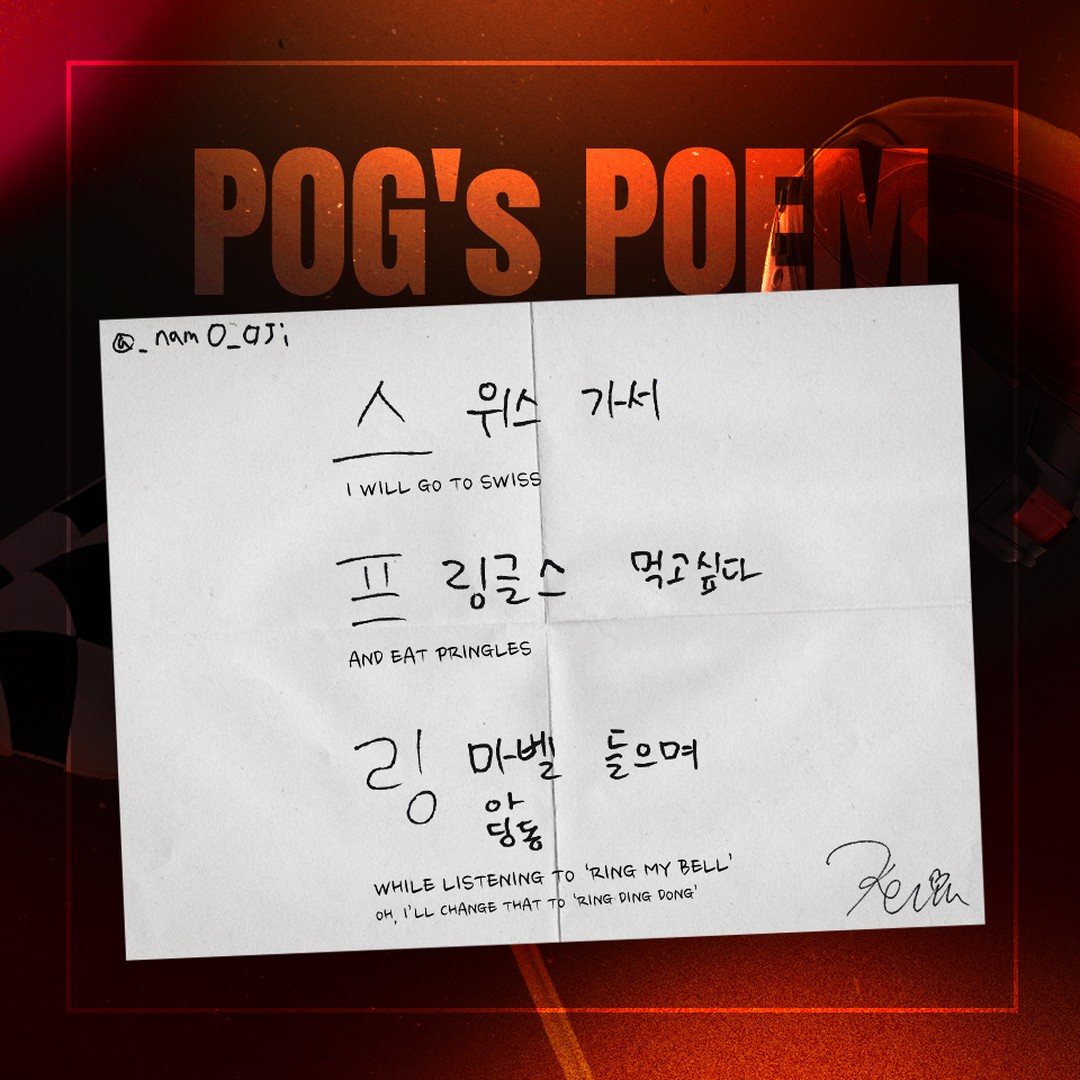 POG's POEM
@_namO_aji
스 위스 가서
I WILL GO TO SWISS
프 링글스 먹고싶다
AND EAT PRINGLES
링 마벨 들으며
아
딩동
WHILE LISTENING TO 'RING MY BELL'
OH, I'LL CHANGE THAT TO 'RING DING DONG'
Kevin